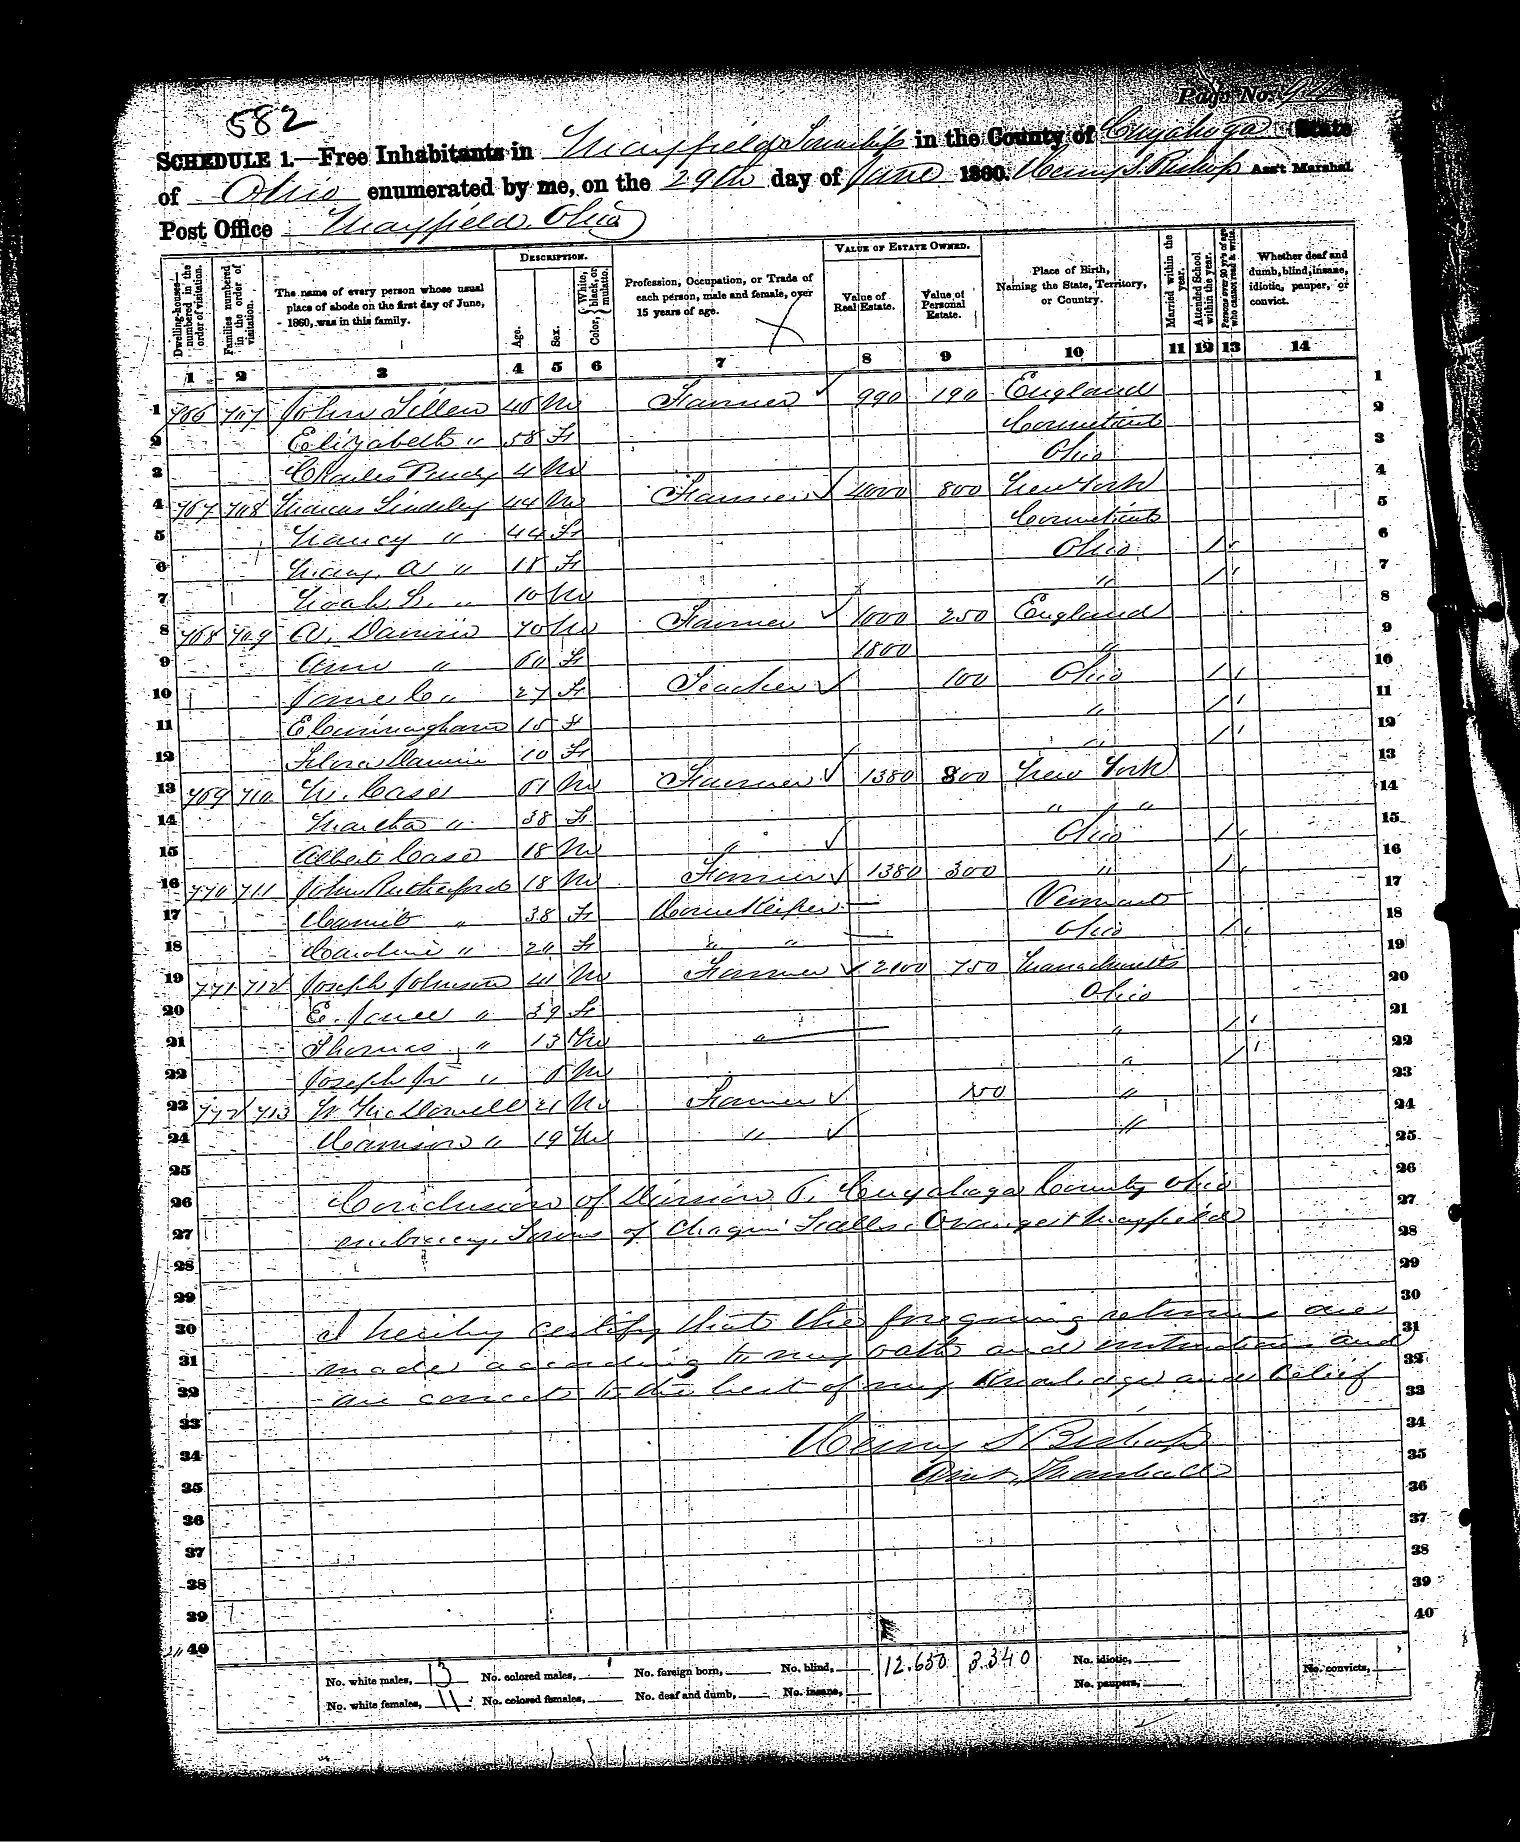 582
Page No. 94
SCHEDULE 1.—Free Inhabitants in Mayfield Township in the County of Cuyahoga State
of Ohio enumerated by me, on the 29th day of June 1860. Henry S. Bishop Ass't Marshal.
Post Office Mayfield, Ohio
Dwelling-houses—numbered in the order of visitation.
Families numbered in the order of visitation.
The name of every person whose usual place of abode on the first day of June, 1860, was in this family.
DESCRIPTION.
Age.
Sex.
Color, {White, black, or mulatto.
Profession, Occupation, or Trade of each person, male and female, over 15 years of age.
VALUE OF ESTATE OWNED.
Value of Real Estate.
Value of Personal Estate.
Place of Birth, Naming the State, Territory, or Country.
Married within the year.
Attended School within the year.
Persons over 20 y'rs of age who cannot read & write.
Whether deaf and dumb, blind, insane, idiotic, pauper, or convict.
1 2 3 4 5 6 7 8 9 10 11 12 13 14
1 766 707 John M Farmer 990 190 England 1
2 Elizabeth " 58 F 2
3 Charles 4 M Ohio 3
4 767 708 44 M Farmer 4000 800 New York 4
5 Nancy " 44 F 5
6 Mary A " 18 F Ohio 1 6
7 Noah " 10 M " 1 7
8 768 709 A. 70 M Farmer 1000 250 England 8
9 Ann " F 1800 " 9
10 Jane C " 27 F Teacher 100 Ohio 1 10
11 E Cunningham 15 F " 1 11
12 10 F " 1 12
13 769 710 Case 61 M Farmer 1380 800 New York 13
14 Martha " 38 F " " 14
15 Albert Case 18 M " Ohio 1 15
16 770 711 John Rutherford 18 M Farmer 1380 300 " 1 16
17 " 38 F House Keeper Vermont 17
18 Caroline " F " " Ohio 1 18
19 771 712 Joseph Johnson 41 M Farmer 2100 750 Massachusetts 19
20 E. Jane " 39 F Ohio 20
21 Thomas " 13 M " " 1 21
22 Joseph Jr " M " 1 22
23 772 713 McDowell 21 M Farmer 150 " 23
24 Harrison " 19 M " " 24
25 25
26 Conclusion of Division Cuyahoga County Ohio 26
27 embracing Towns of Chagrin Falls, Orange & Mayfield 27
28 28
29 29
30 I hereby certify that the foregoing returns are 30
31 made according to my oath and instructions and 31
32 are correct to the best of my knowledge and belief 32
33 33
34 Henry S Bishop 34
35 Assist. Marshall 35
36 36
37 37
38 38
39 39
40 40
No. white males, 13 No. colored males, No. foreign born, No. blind, 12.650 3.340 No. idiotic, No. convicts,
No. white females, 11 No. colored females, No. deaf and dumb, No. insane, No. paupers,